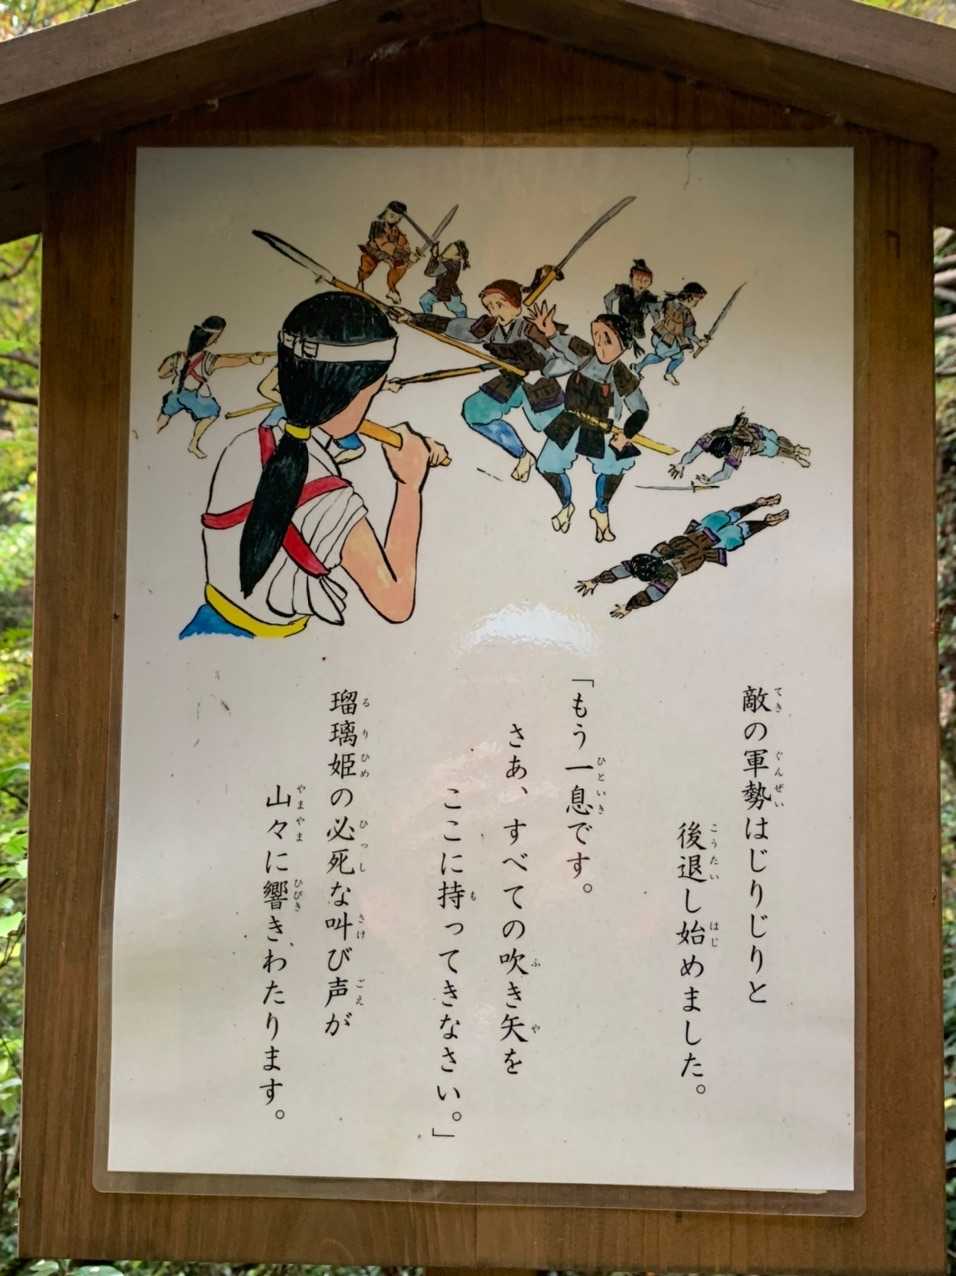 敵の軍勢はじりじりと
後退し始めました。
「もう一息です。
さあ、すべての吹き矢を
ここに持ってきなさい。」
瑠璃姫の必死な叫び声が
山々に響きわたります。